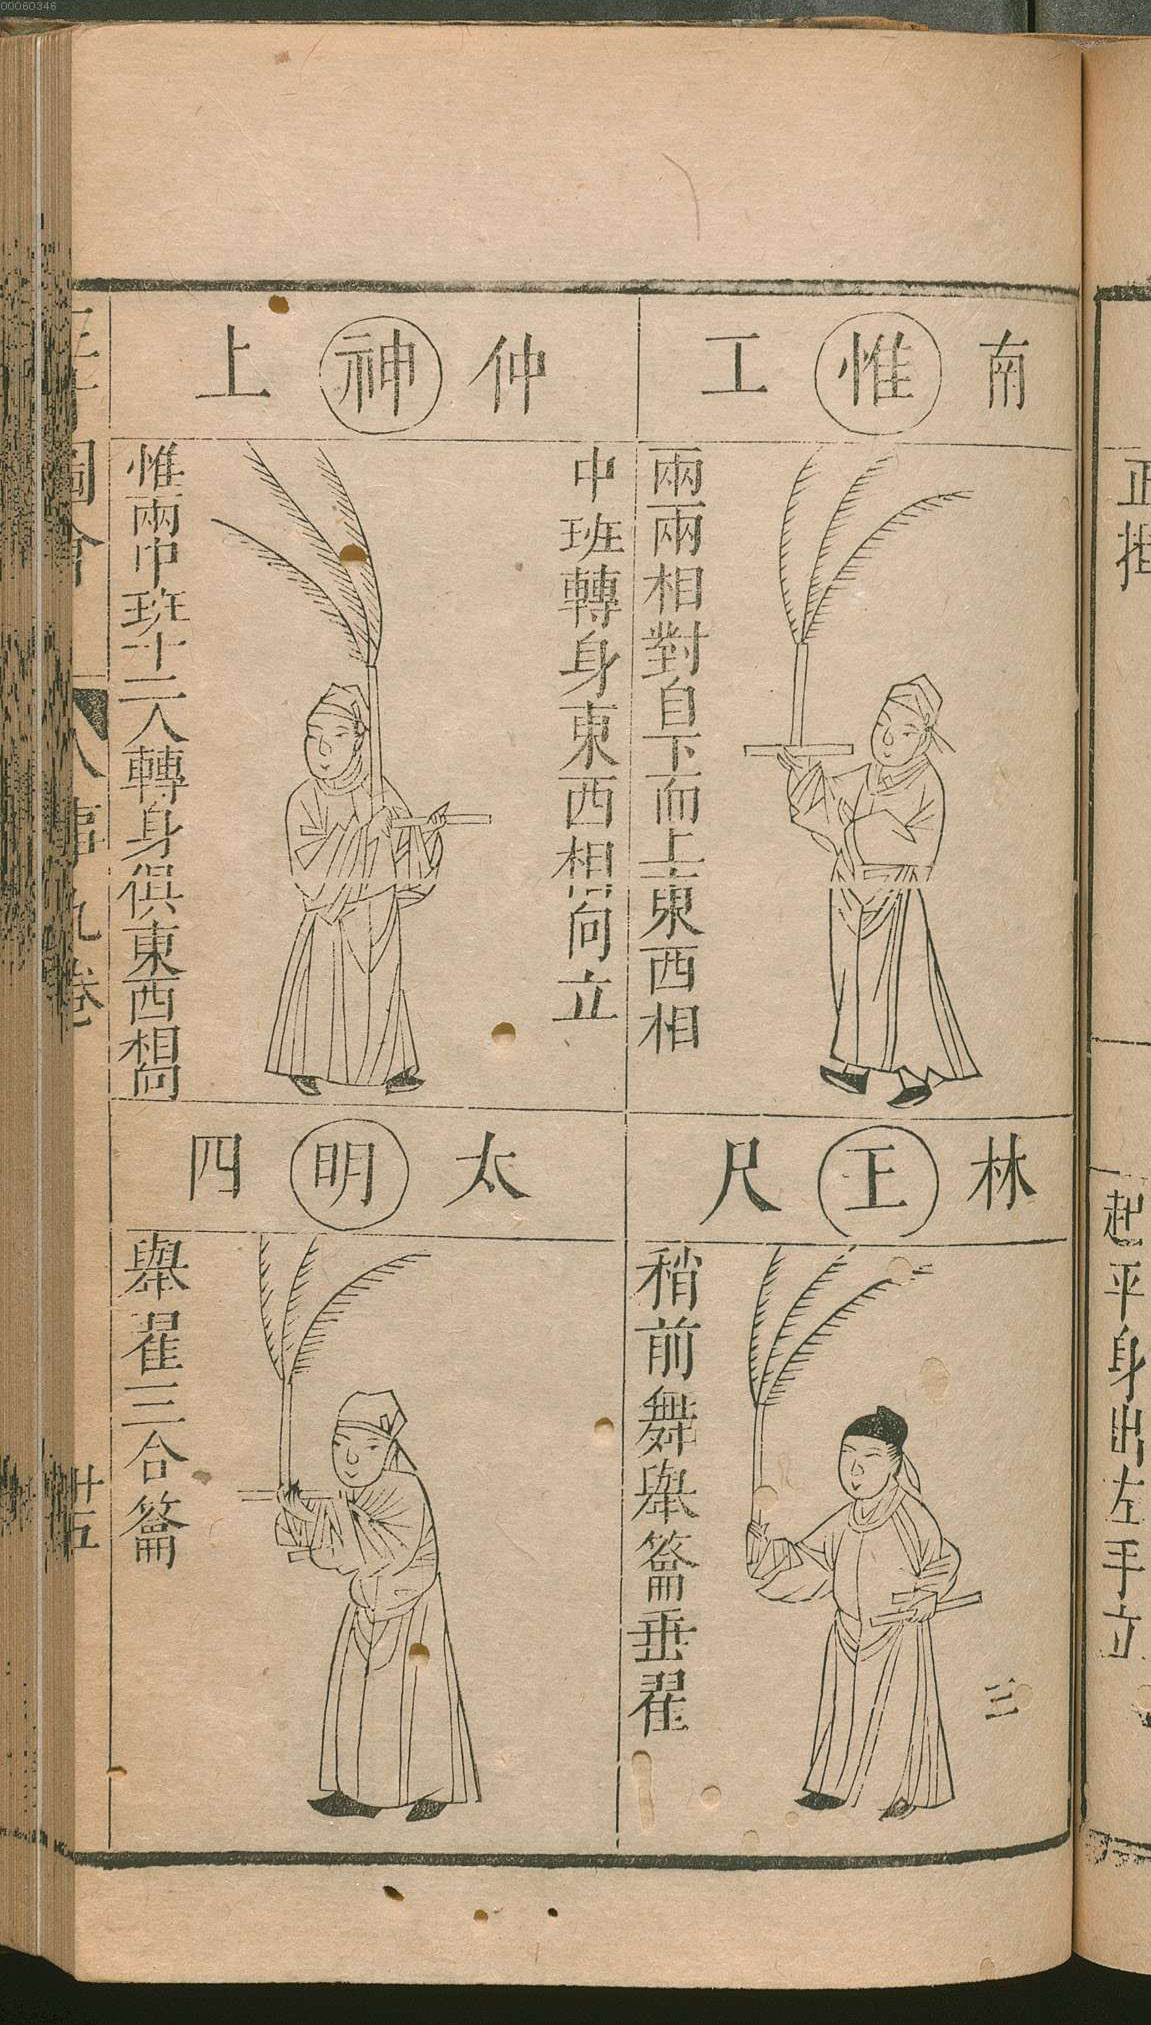 00060346
南 惟 工
兩兩相對自下而上東西相
仲 神 上
中班轉身東西相向立
惟兩中班十二人轉身俱東西相向
林 王 尺
稍前舞舉籥垂翟
三
太 明 四
舉翟三合籥
圖會
人事九卷
廿五
正揖
起平身出左手立